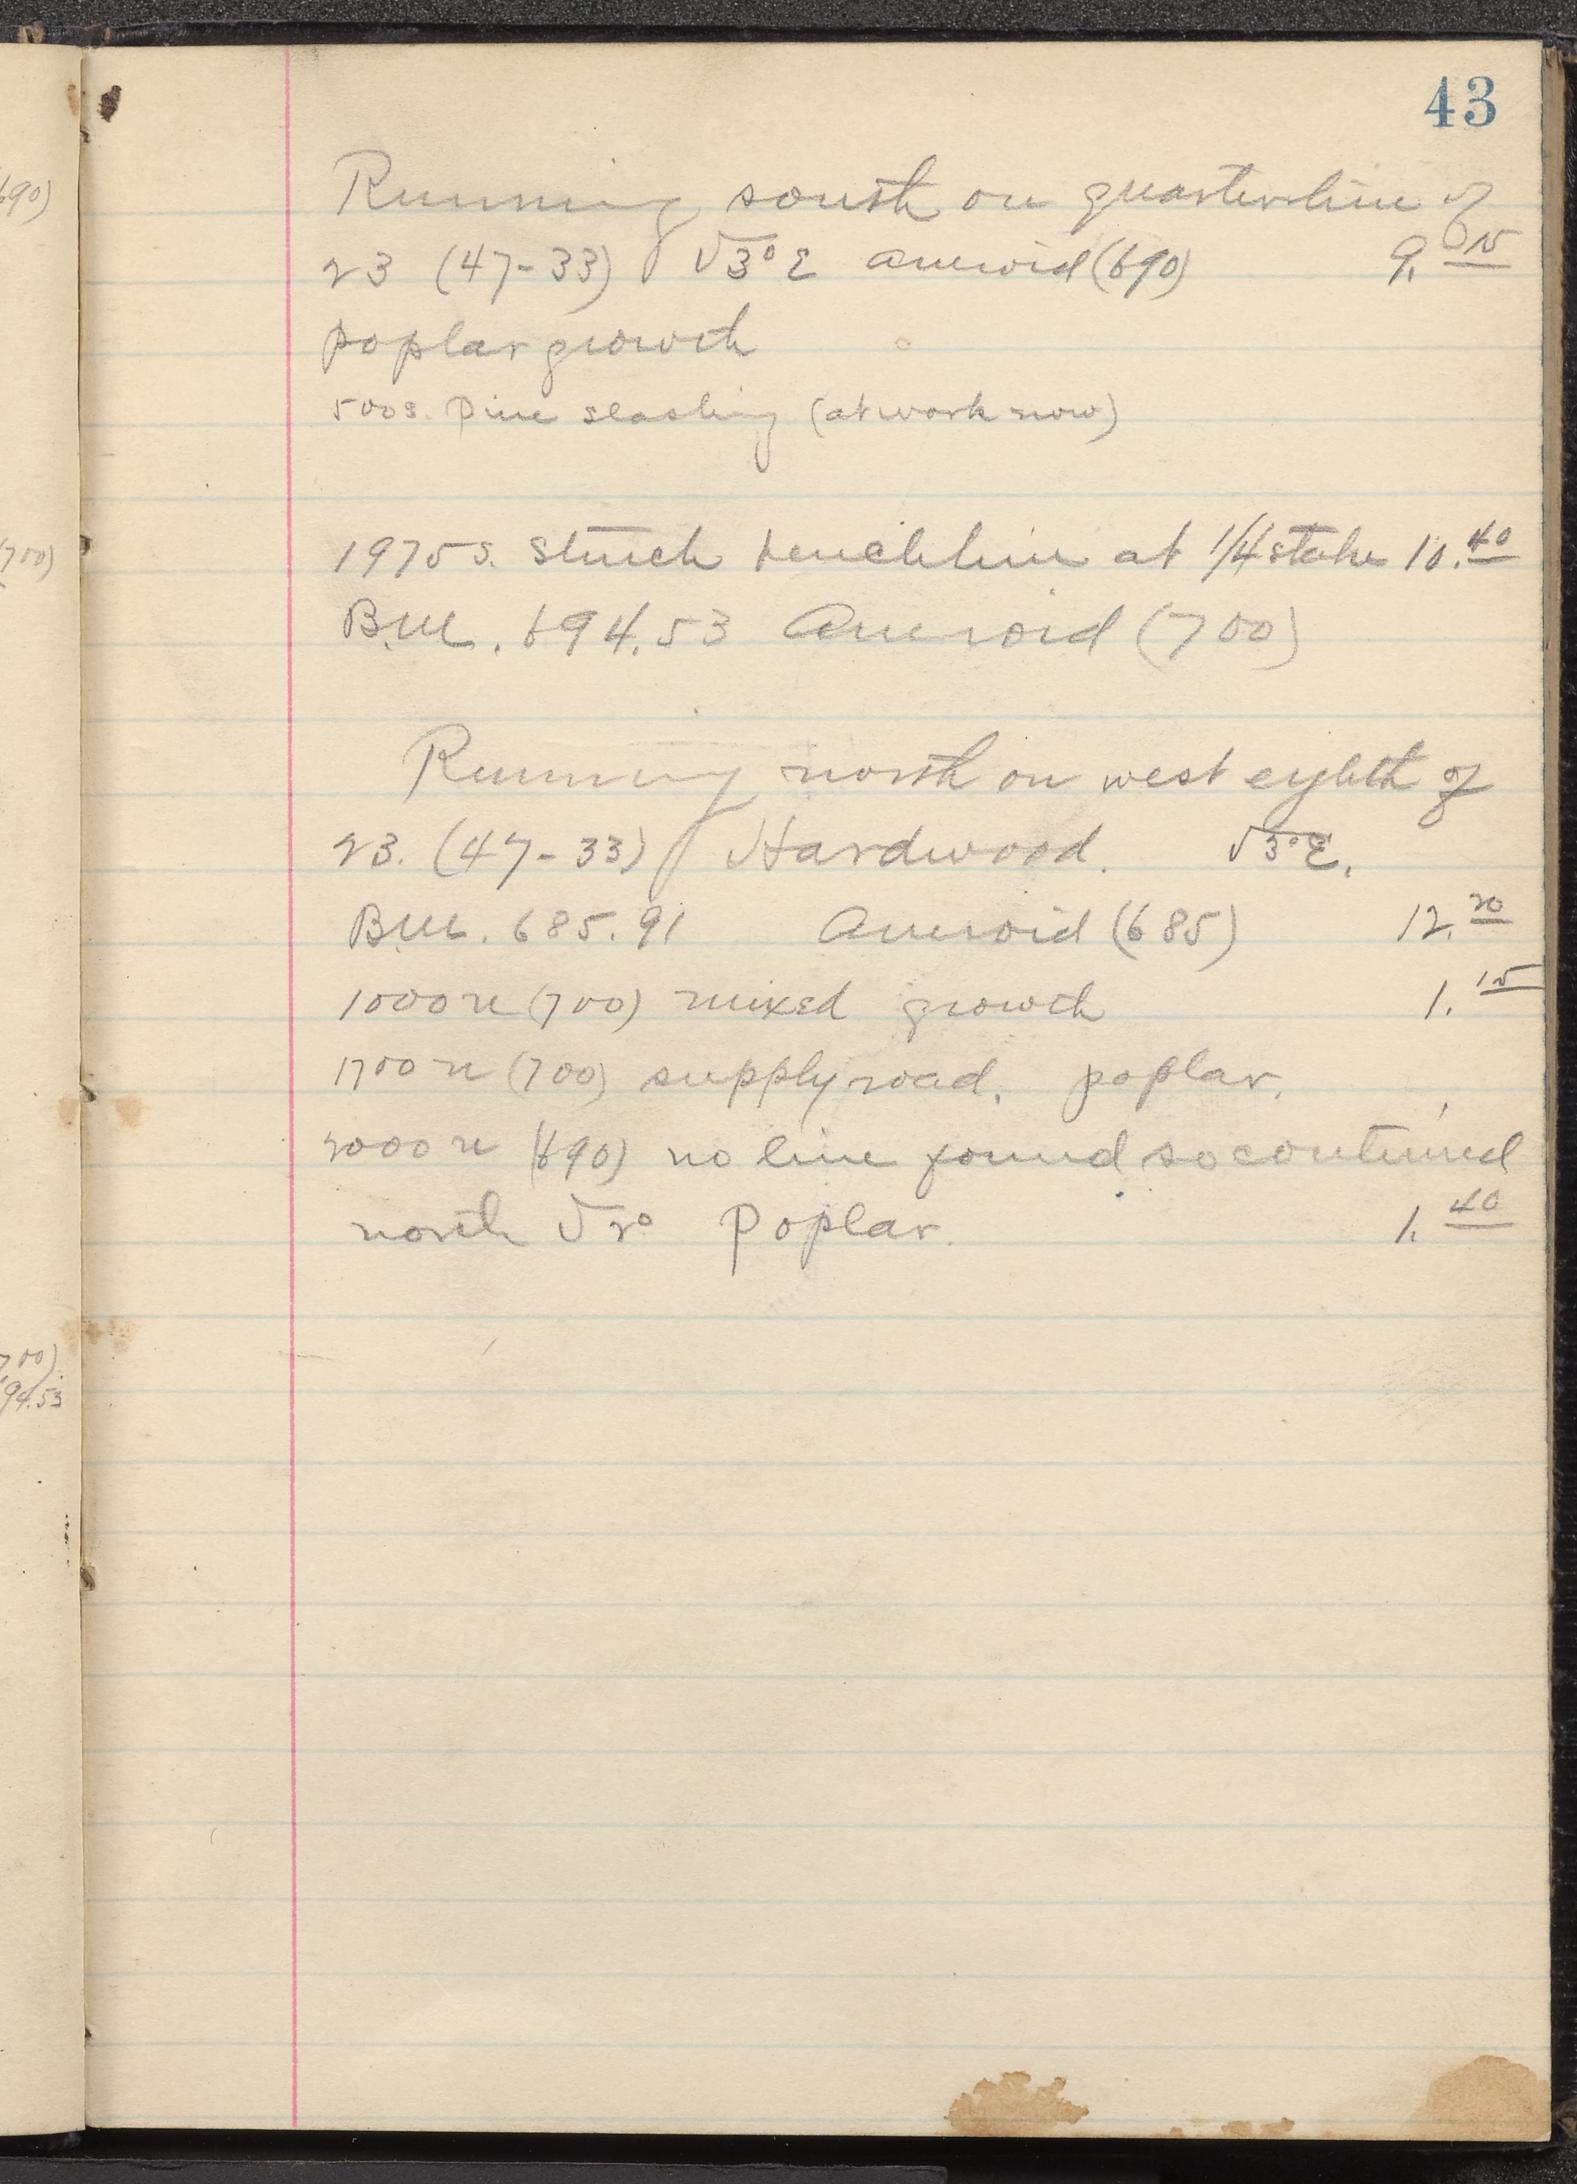 43
Running south on quarterline of
23 (47-33) √3°E aneroid (690) 9.15
poplar growth
500 s. Pine slashing (at work now)
1975 s. Struck benchline at 1/4 stake 10.40
B.M. 694.53 Aneroid (700)
Running north on west eighth of
23. (47-33) Hardwood. √3°E.
B.M. 685.91 Aneroid (685) 12.20
1000 n (700) mixed growth 1.15
1700 n (700) supply road. poplar.
2000 n (690) no line found so continued
north √2° Poplar. 1.40
690)
(700)
700)
94.53